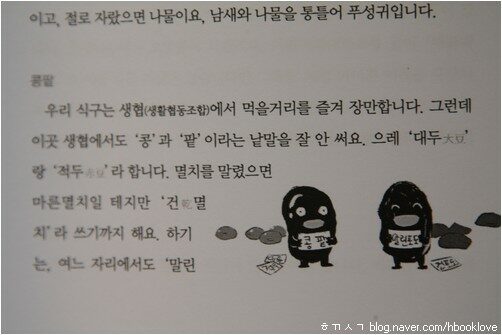 이고, 절로 자랐으면 나물이요, 남새와 나물을 통틀어 푸성귀입니다.
콩팥
우리 식구는 생협(생활협동조합)에서 먹을거리를 즐겨 장만합니다. 그런데
이곳 생협에서도 ‘콩’과 ‘팥’이라는 낱말을 잘 안 써요. 으레 ‘대두大豆’
랑 ‘적두赤豆’라 합니다. 멸치를 말렸으면
마른멸치일 테지만 ‘건乾멸
치’라 쓰기까지 해요. 하기
는, 여느 자리에서도 ‘말린
콩팥
ㅎㄲㅅㄱ blog.naver.com/hbooklove